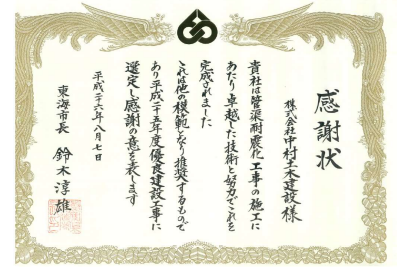 感謝状
株式会社中村土木建設様
貴社は管渠耐震化工事の施工に
あたり卓越した技術と努力でこれを
完成されました
これは他の模範となり推奨するもので
あり平成二十五年度優良建設工事に
選定し感謝の意を表します
平成二十六年八月七日
東海市長 鈴木淳雄